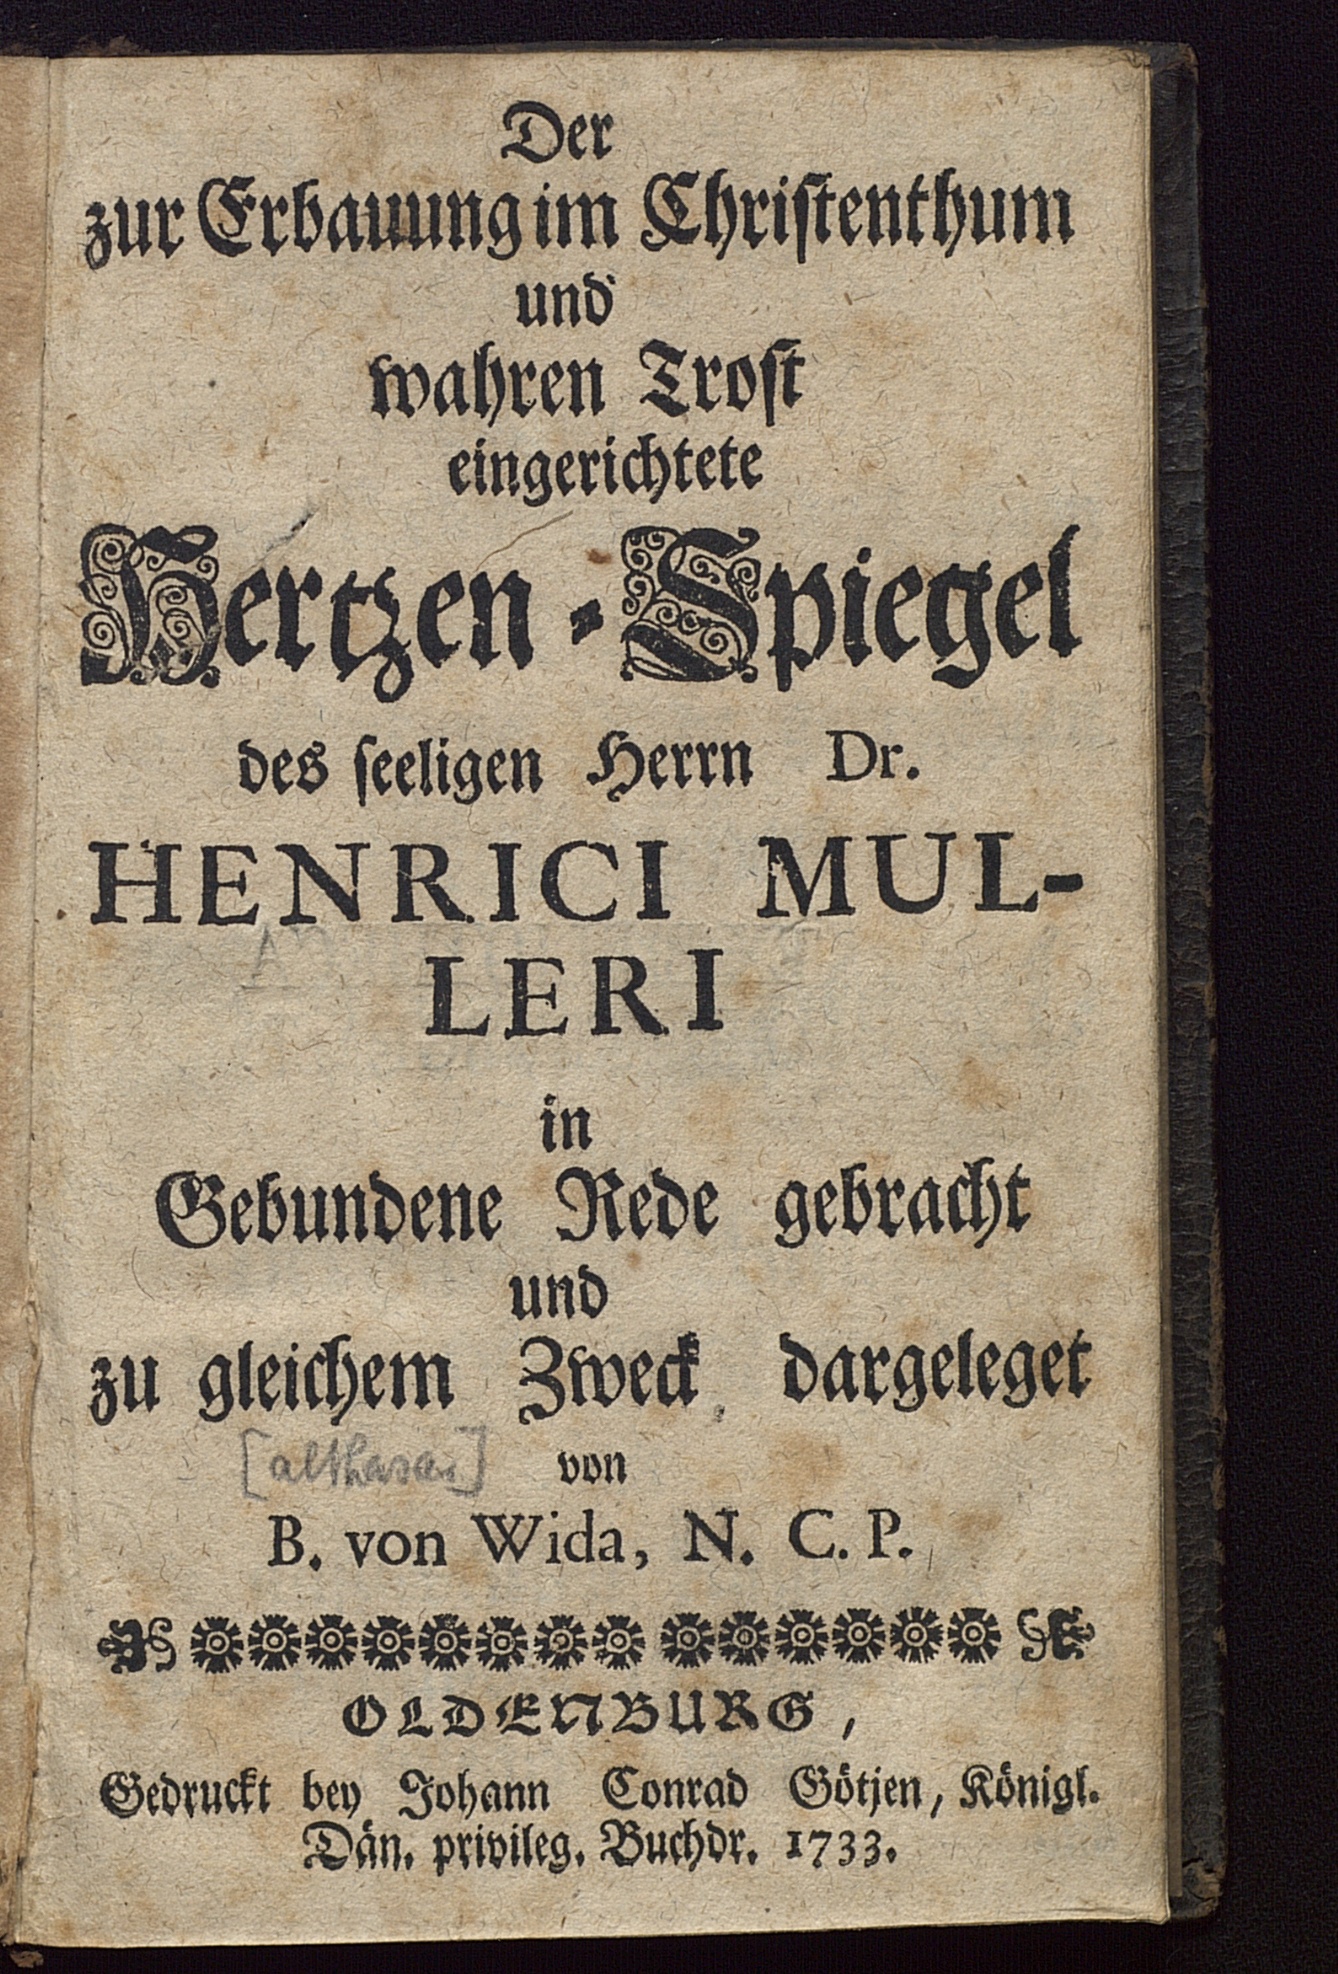 Der
zur Erbauung im Christenthum
und
wahren Trost
eingerichtete
Hertzen-Spiegel
des seeligen Herrn Dr.
HENRICI MUL-
LERI
in
Gebundene Rede gebracht
und
zu gleichem Zweck dargeleget
[althasar] von
B. von Wida, N. C. P.
OLDENBURG,
Gedruckt bey Johann Conrad Götjen, Königl.
Dän. privileg. Buchdr. 1733.